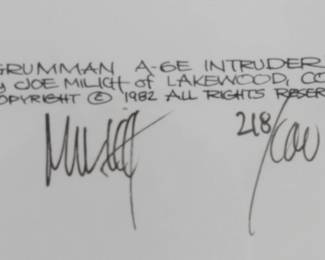 GRUMMAN A-6E INTRUDER
y JOE MILICH of LAKEWOOD, CO
OPYRIGHT © 1982 ALL RIGHTS RESER
218/